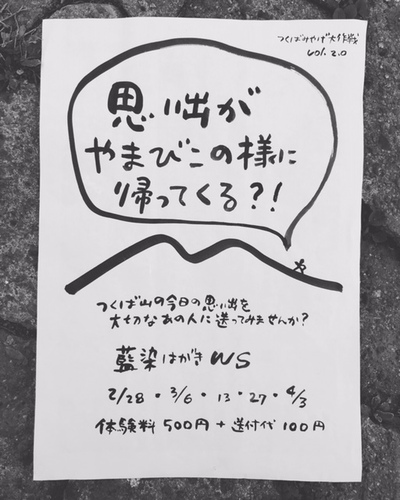 つくばみやげ大作戦
vol. 2.0
思い出が
やまびこの様に
帰ってくる?!
つくば山の今日の思い出を
大切なあの人に送ってみませんか?
藍染はがきWS
2/28・3/6・13・27・4/3
体験料500円+送付代100円